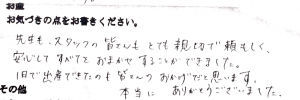 お産
お気づきの点をお書きください。
先生も、スタッフの皆さんもとても親切で頼もしく、
安心してすべてをおまかせすることができました。
1日で出産できたのも皆さんのおかげだと思います。
本当にありがとうございました。
その他